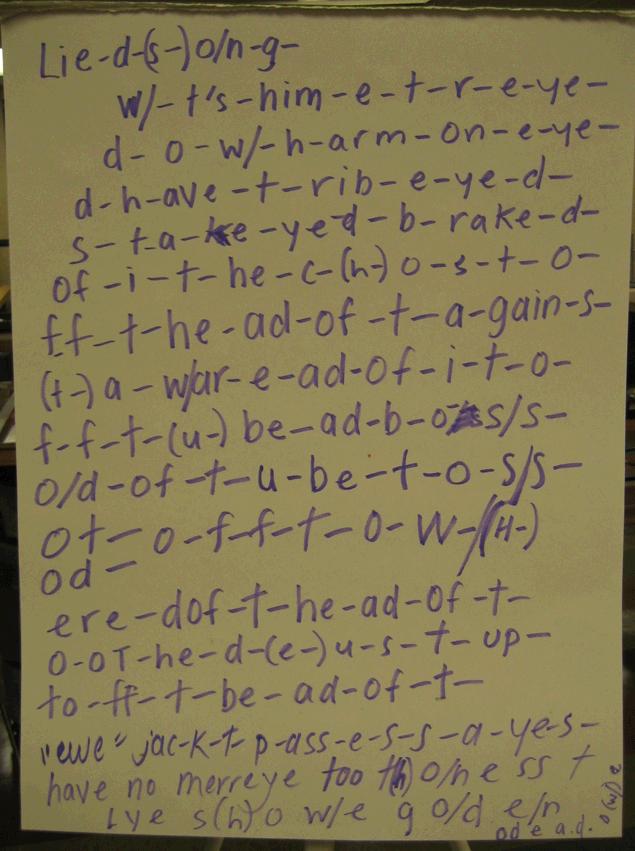 Lie-d-(s-)o/n-g-
w/-t's-him-e-t-r-e-ye-
d-o-w/-h-arm-on-e-eye-
d-h-ave-t-rib-e-ye-d-
s-t-a-ke-yed-b-rake-d-
of-i-t-he-c-(h-)o-s-t-o-
ff-t-he-ad-of-t-a-gain-s-
(t-)a-w/ar-e-ad-of-i-t-o-
f-f-t-(u-)be-ad-b-o-s/s-
o/d-of-t-u-be-t-o-s/s-
ot-o-f-f-t-o-w-/(H-)
od-
ere-dof-t-he-ad-of-t-
o-oT-he-d-(e-)u-s-t-up-
to-ff-t-be-ad-of-t-
"ewe" jac-k-t-p-ass-e-s-s-a-ye-s-
have no merreye too t(h)o/n e ss t
Lye s(h)o w/e g o/d e/n
od e a.d.